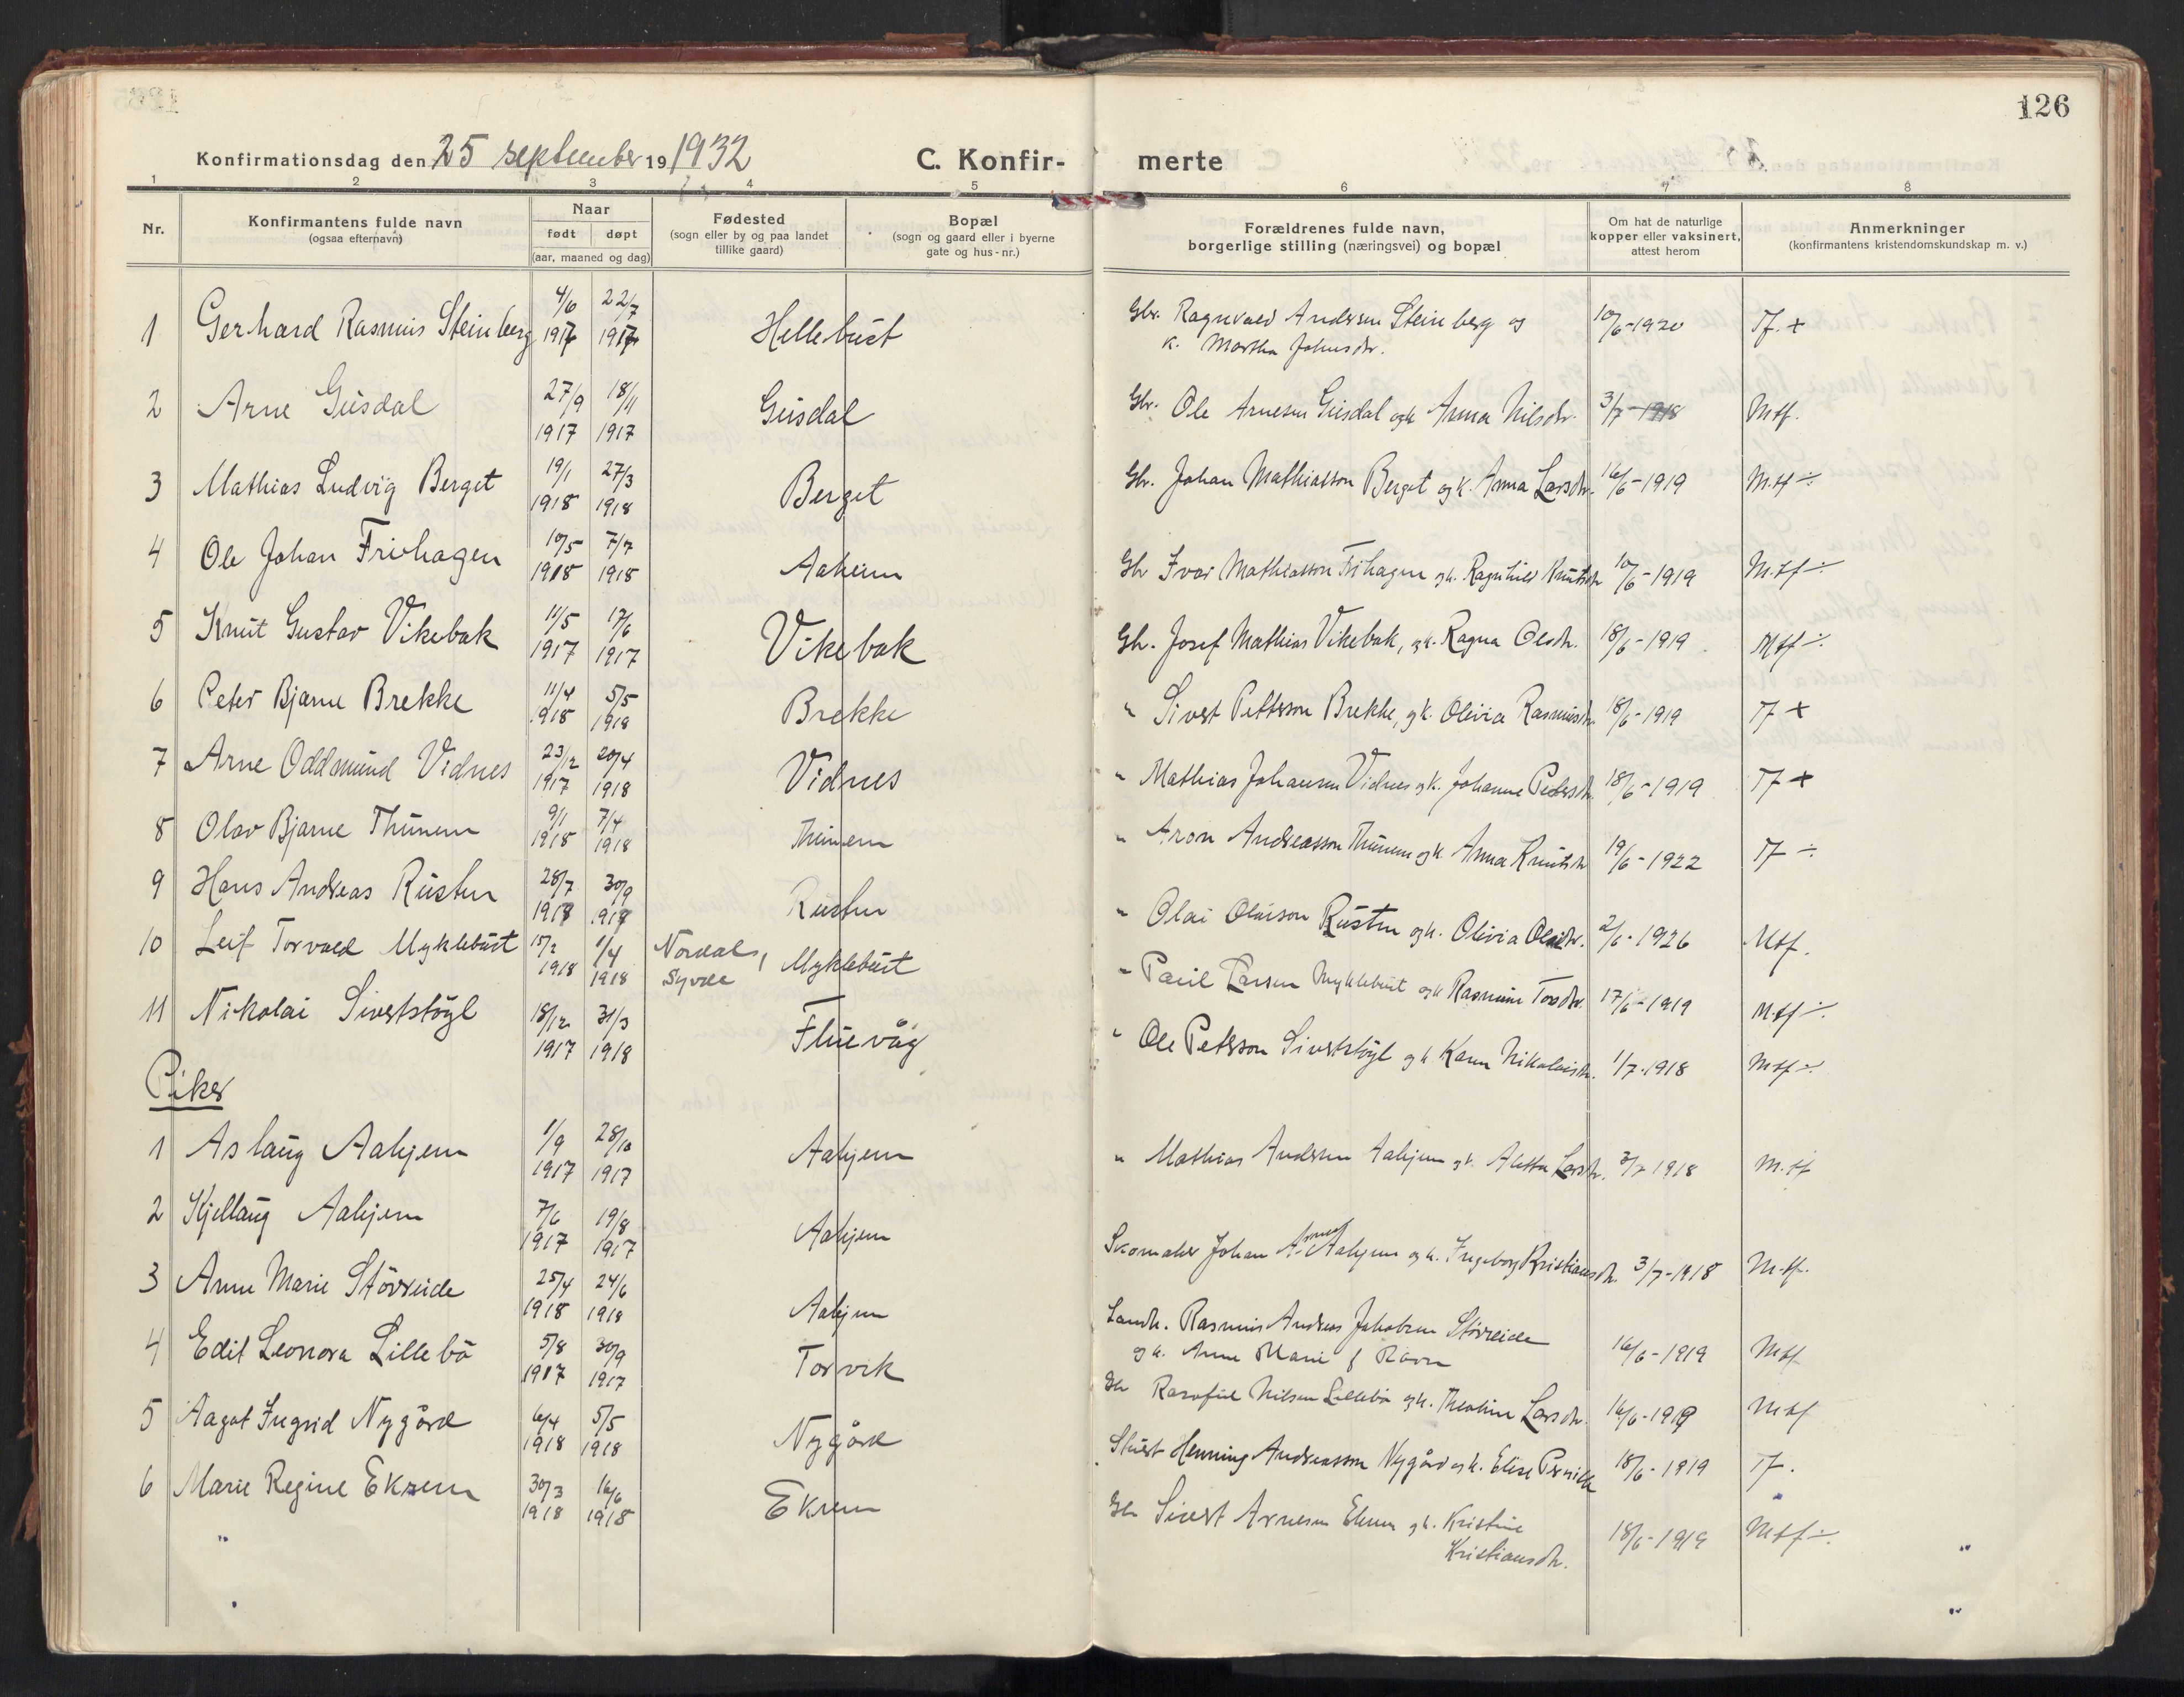 126
Konfirmationsdag den 25 september 19 1932
C. Konfir- merte
1 2 3 4 5 6 7 8
Nr.
Konfirmantens fulde navn
(ogsaa efternavn)
Naar
født døpt
(aar, maaned og dag)
Fødested
(sogn eller by og paa landet
tillike gaard)
Bopæl
(sogn og gaard eller i byerne
gate og hus-nr.)
Forældrenes fulde navn,
borgerlige stilling (næringsvei) og bopæl
Om hat de naturlige
kopper eller vaksinert,
attest herom
Anmerkninger
(konfirmantens kristendomskundskap m. v.)
1 Gerhard Rasmus Steinberg 4/6 1917 22/7 1917 Hellebust Gbr. Ragnvald Andersen Steinberg og 10/6-1920 Tf. +
k. Martha Johnsdr.
2 Arne Gusdal 27/9 1917 18/11 1917 Gusdal Gbr. Ole Arnesen Gusdal og k Anna Nilsdr. 3/7-1918 Mtf.
3 Mathias Ludvig Berget 19/1 1918 27/3 1918 Berget Gbr. Johan Mathiasson Berget og k. Anna Larsdr. 16/6-1919 M.tf ÷
4 Ole Johan Frihagen 10/5 1918 7/7 1918 Aaheim Gbr Ivar Mathiasson Frihagen og k. Ragnhild Knutsdr 10/6-1919 M.tf ÷
5 Knut Gustav Vikebak 11/5 1917 17/6 1917 Vikebak Gbr. Josef Mathias Vikebak, og k. Ragna Olsdr. 18/6-1919 Mtf ÷
6 Peter Bjarne Brekke 11/4 1918 5/5 1918 Brekke " Sivert Pettersson Brekke, og k. Olivia Rasmusdr 18/6-1919 Tf +
7 Arne Oddmund Vidnes 23/12 1917 20/4 1918 Vidnes " Mathias Johansen Vidnes og k. Johanne Pedersdr. 18/6-1919 Tf +
8 Olav Bjarne Thunem 9/1 1918 7/4 1918 Thunem " Aron Andreasson Thunem og k. Anna Knutsdr 19/6-1922 Tf ÷
9 Hans Andreas Rusten 28/7 1917 30/9 1917 Rusten " Olai Olaison Rusten og k. Olivia Olaidr. 2/6-1926 Mtf.
10 Leif Torvald Myklebust 15/2 1918 1/4 1918 Nordal, Syvde Myklebust " Paul Larsen Myklebust og k Rasmine Tordr. 17/6-1919 M.tf ÷
11 Nikolai Sivertstøyl 18/12 1917 31/3 1918 Fluevåg " Ole Petersson Sivertstøyl og k. Karen Nikolaisdr. 1/7-1918 Mtf ÷
Piker
1 Aslaug Aahjem 1/9 1917 28/10 1917 Aahjem " Mathias Andersen Aahjem og k. Aletta Larsdr. 3/7 1918 M.tf
2 Kjellaug Aahjem 7/6 1917 19/8 1917 Aahjem Skomaker Johan A. Aahjem og k. Ingeborg Kristiansdr. 3/7-1918 M.tf.
3 Anne Marie Störreide 25/4 1918 24/6 1918 Aahjem Landh. Rasmus Andreas Jakobsen Störreide 16/6-1919 Mtf
og k. Anne Marie f Ravn
4 Edit Leonora Lillebö 5/8 1917 30/9 1917 Torvik Gbr Nilsen Lillebö og k. Theoline Larsdr. 16/6-1919 Mtf
5 Aagot Ingrid Nygård 6/4 1918 5/5 1918 Nygård Henning Andreasson Nygård og k. Elise 18/6-1919 Tf.
6 Marie Regine Ekrem 30/3 1918 16/6 1918 Ekrem Gbr Sivert Arnesen Ekrem og k. Kristine 18/6-1919 Mtf ÷
Kristiansdr.